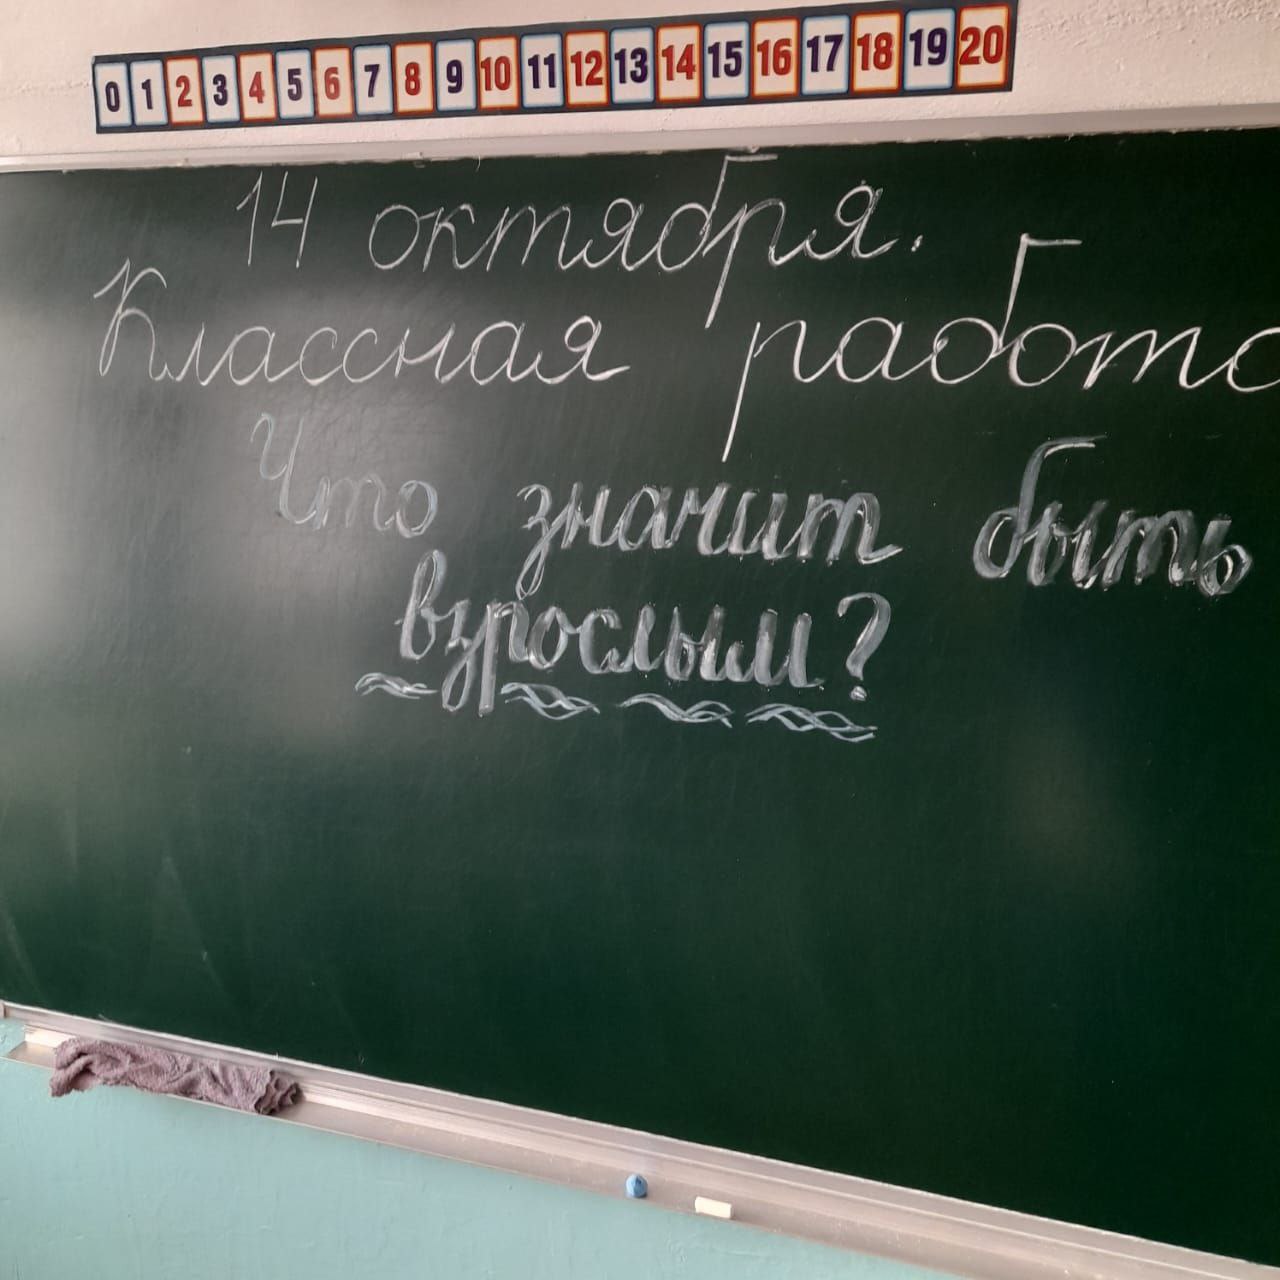 0 1 2 3 4 5 6 7 8 9 10 11 12 13 14 15 16 17 18 19 20
14 октября.
Классная работа
Что значит быть
взрослым?